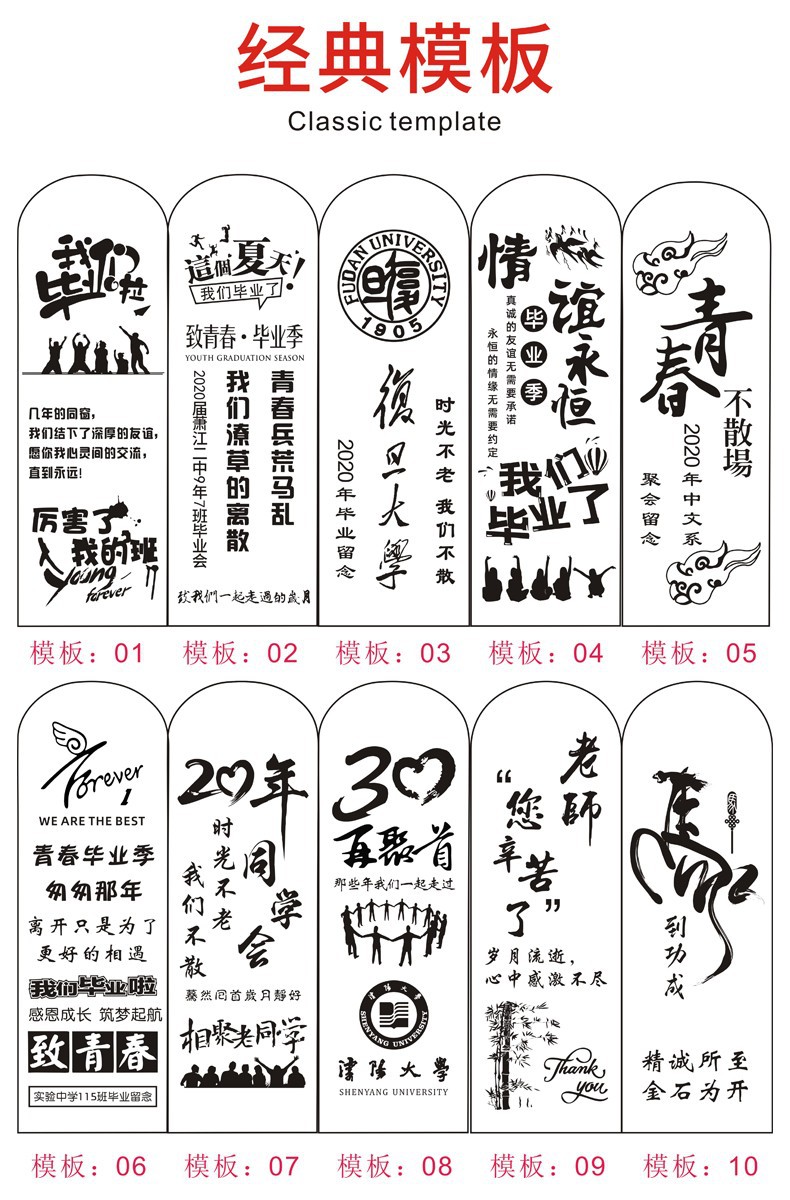 经典模板
Classic template
我们
毕业啦
几年的同窗，
我们结下了深厚的友谊，
愿你我心灵间的交流，
直到永远！
厉害了
我的班
young
forever
模板：01
這個夏天！
我们毕业了
致青春·毕业季
YOUTH GRADUATION SEASON
青春兵荒马乱
我们潦草的离散
2020届萧江二中9年7班毕业会
致我們一起走過的歲月
模板：02
FUDAN UNIVERSITY
復旦
1905
復旦大學
时光不老 我们不散
2020年毕业留念
模板：03
情谊永恒
毕业季
真诚的友谊无需要承诺
永恒的情缘无需要约定
我们
毕业了
模板：04
青春
不散場
2020年中文系
聚会留念
模板：05
Forever
1
WE ARE THE BEST
青春毕业季
匆匆那年
离开只是为了
更好的相遇
我们毕业啦
感恩成长 筑梦起航
致青春
实验中学115班毕业留念
模板：06
20年
同学会
时光不老
我们不散
蓦然回首歲月靜好
相聚老同学
模板：07
30
再聚首
那些年我们一起走过
SHENYANG UNIVERSITY
瀋陽大學
SHENYANG UNIVERSITY
模板：08
老師
“您辛苦了”
岁月流逝，
心中感激不尽
Thank
you
模板：09
馬
到功成
精诚所至
金石为开
模板：10